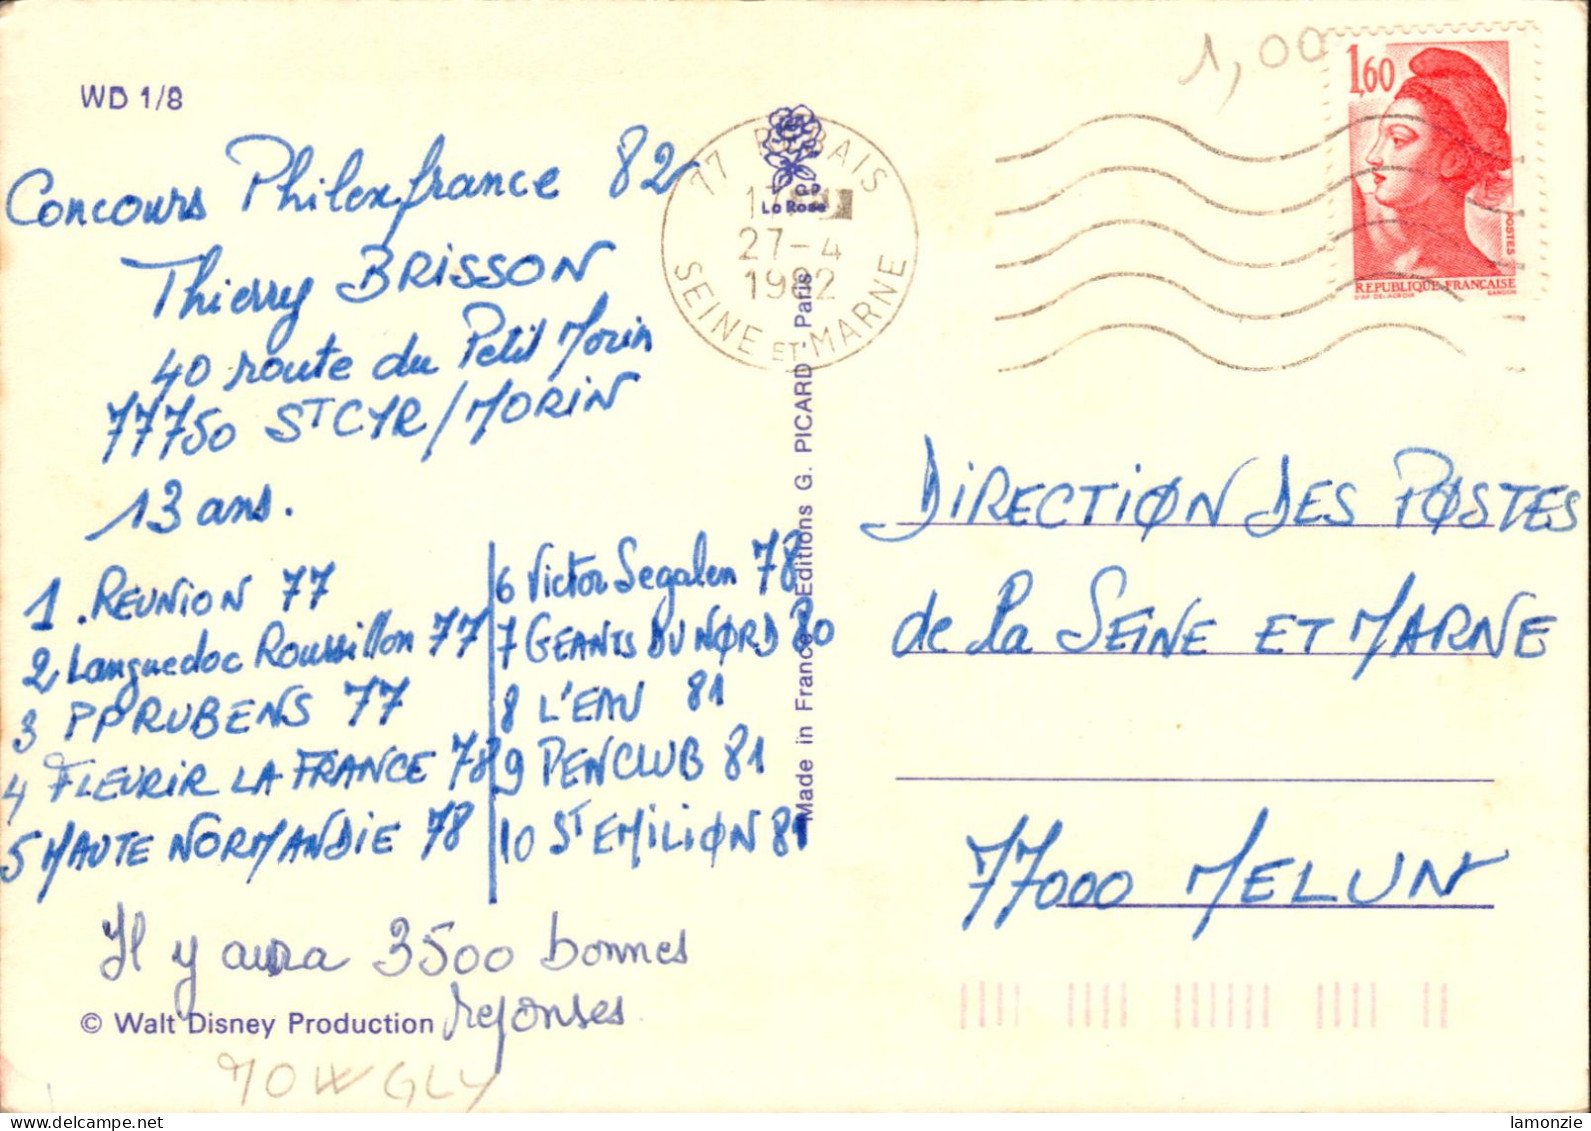 WD 1/8
Concours Philexfrance 82
Thierry BRISSON
40 route du Petit Morin
77750 ST CYR/MORIN
13 ans.
1. REUNION 77
2 Languedoc Roussillon 77
3 PPRUBENS 77
4 FLEURIR LA FRANCE 78
5 HAUTE NORMANDIE 78
6 Victor Segalen 78
7 GEANTS DU NORD 80
8 L'EAU 81
9 PENCLUB 81
10 ST EMILION 81
Il y aura 3500 bonnes
reponses
© Walt Disney Production
Made in France - Editions G. PICARD, Paris
La Rose
77 REBAIS
27-4
1982
SEINE ET MARNE
1,00
1,60
POSTES
REPUBLIQUE FRANÇAISE
D'AP. DELACROIX GANDON
DIRECTION DES POSTES
de la SEINE ET MARNE
77000 MELUN
lamonzie